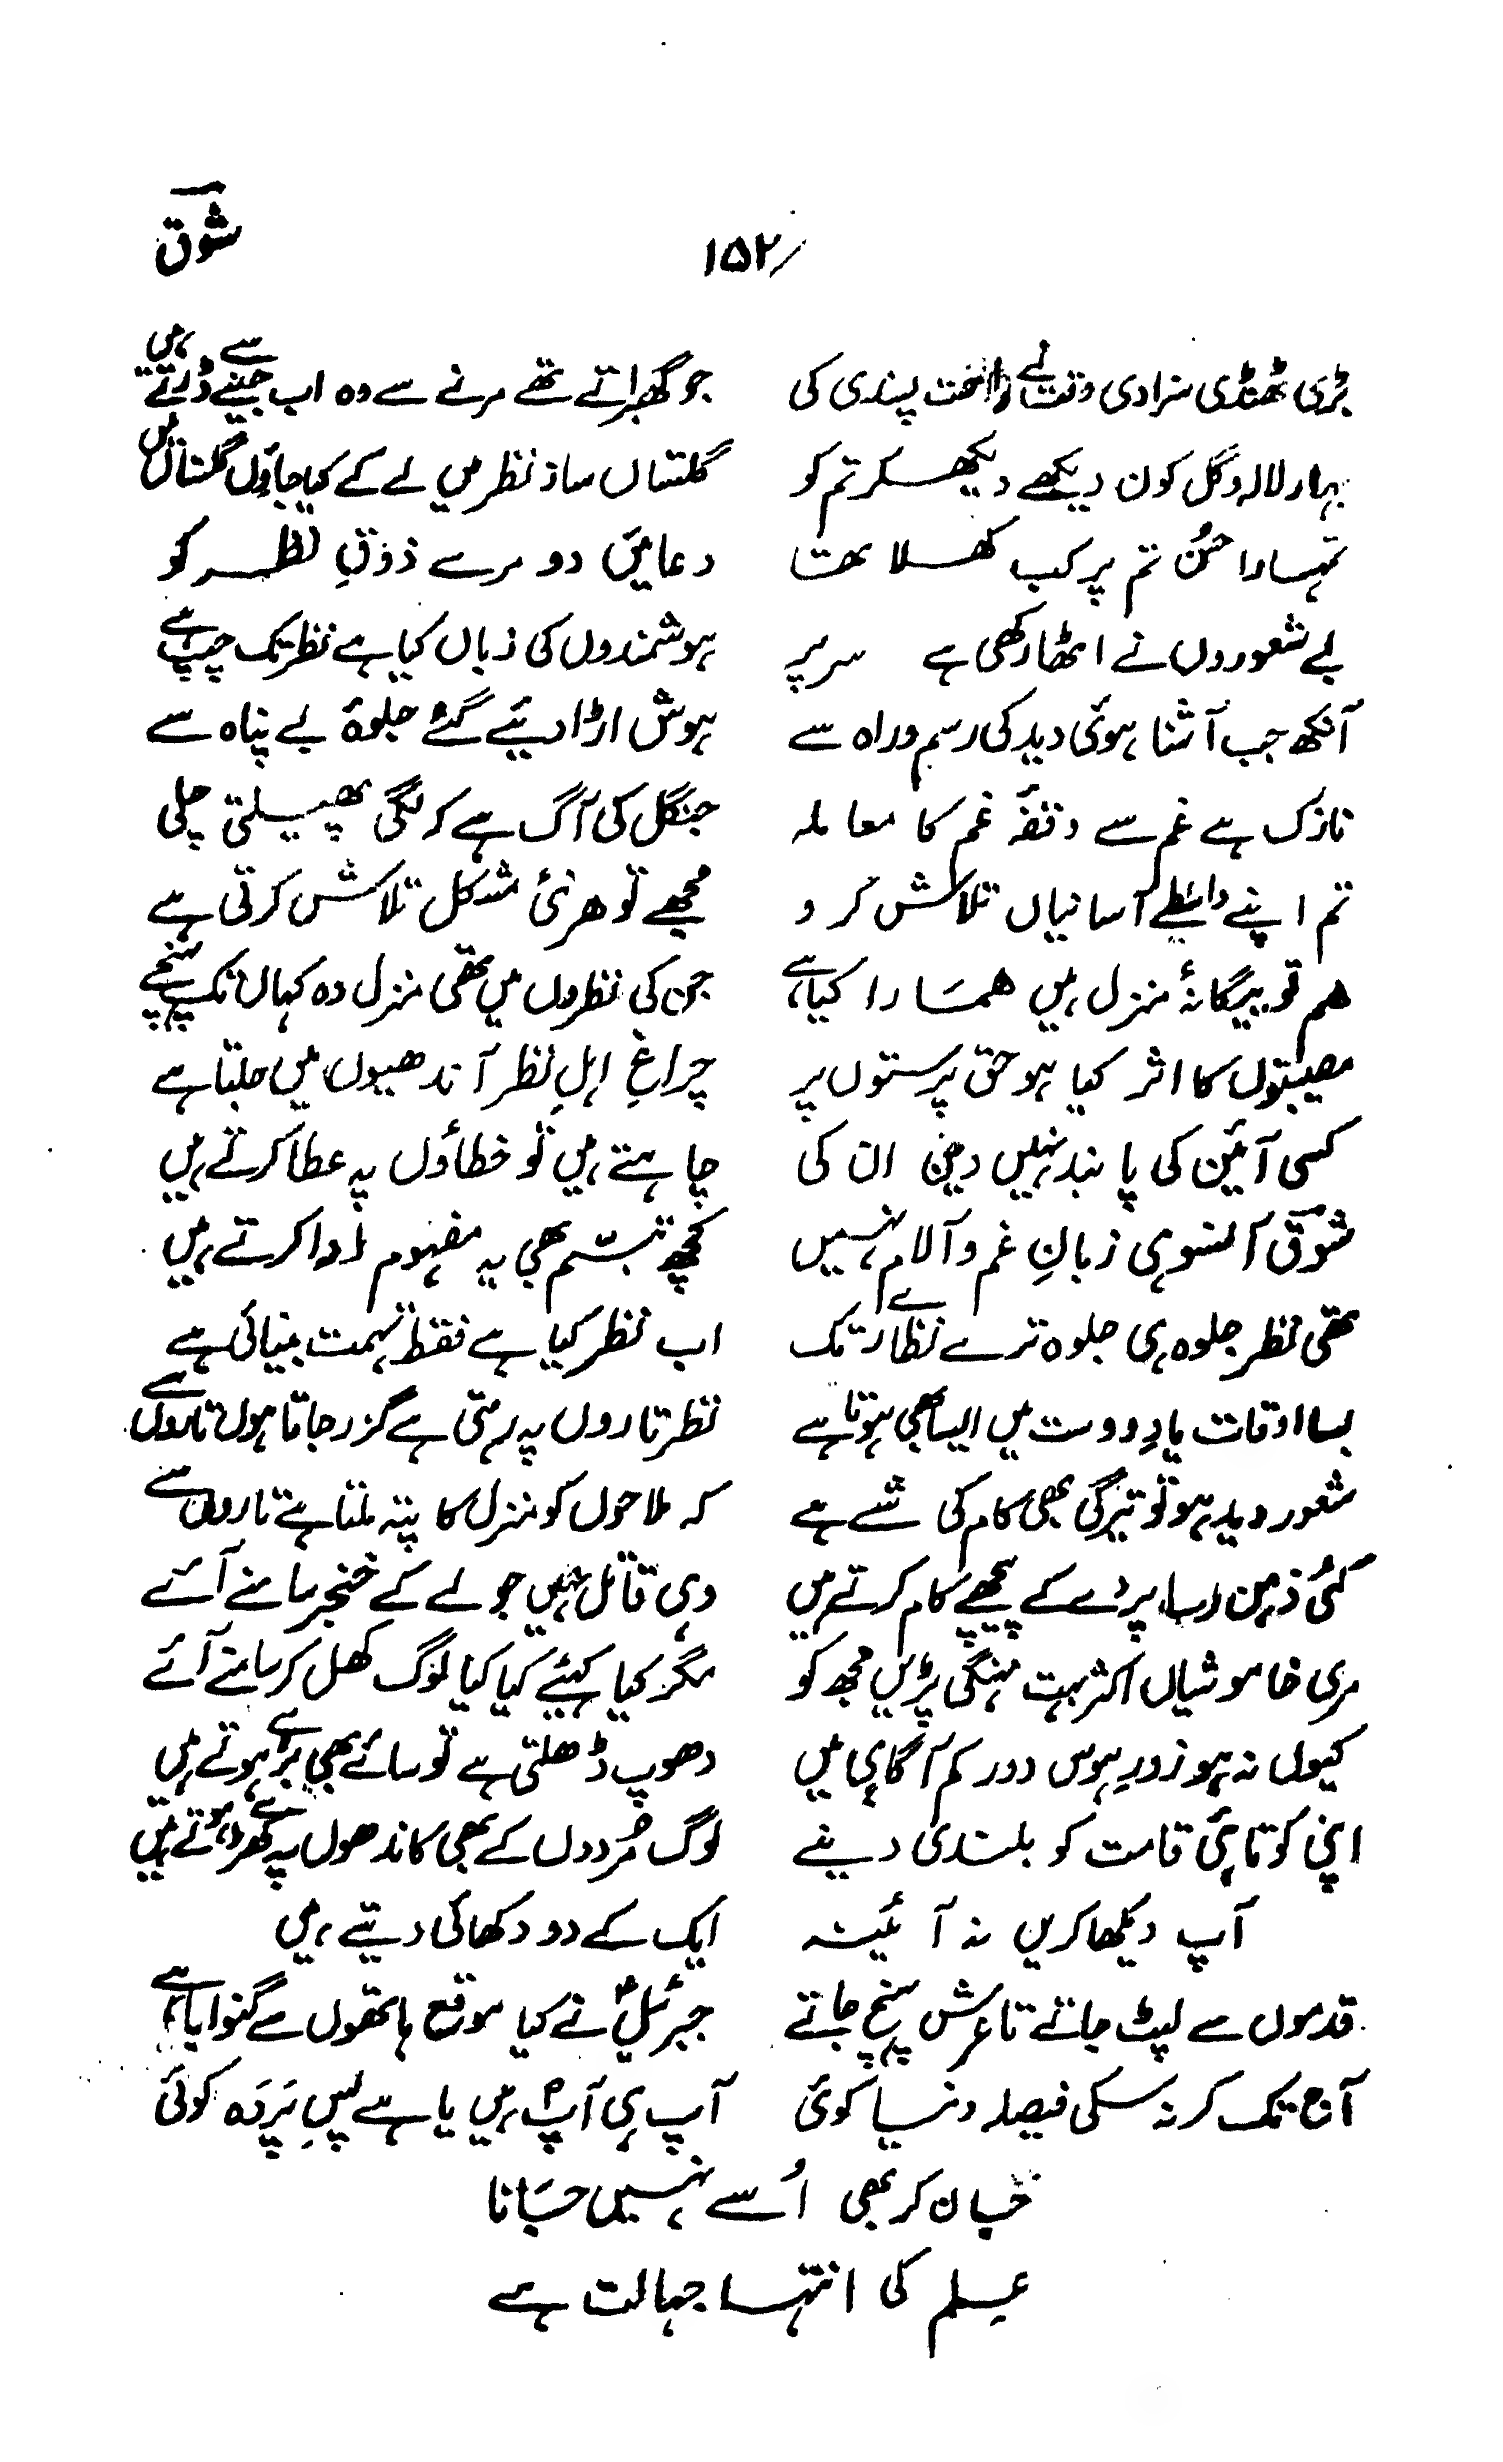 شوق
۱۵۲/
بڑی ٹھنڈی سزا دی وقت نے راحت پسندی کی جو گھبراتے تھے مرنے سے وہ اب جینے سے ڈرتے ہیں
بہار لالہ و گل کون دیکھے دیکھ کر تم کو گلستاں ساز نظر میں لے کے کیا جاؤں گلستاں میں
تمہارا حسُن تم پر کب کھلا تھا دعائیں دو مرے ذوقِ نظر کو
بے شعوروں نے اٹھا رکھی ہے سر پر ہوشمندوں کی زباں کیا ہے نظر تک چپ ہے
آنکھ جب آشنا ہوئی دید کی رسم و راہ سے ہوش اڑا دیئے گئے جلوۂ بے پناہ سے
نازک ہے غم سے وقفۂ غم کا معاملہ جنگل کی آگ ہے کہ لگی پھیلتی چلی
تم اپنے واسطے آسانیاں تلاش کرو مجھے تو ہر نئی مشکل تلاش کرتی ہے
ہم تو بیگانۂ منزل ہیں ہمارا کیا ہے جن کی نظروں میں تھی منزل وہ کہاں تک پہنچے
مصیبتوں کا اثر کیا ہو حق پرستوں پر چراغِ اہلِ نظر آندھیوں میں جلتا ہے
کسی آئین کی پابند نہیں دین ان کی چاہتے ہیں تو خطاؤں پہ عطا کرتے ہیں
شوقؔ آنسو ہی زبانِ غم و آلام نہیں کچھ تبسّم بھی یہ مفہوم ادا کرتے ہیں
تھی نظر جلوہ ہی جلوہ ترے نظارے تک اب نظر کیا ہے فقط تہمت بینائی ہے
بسا اوقات یادِ دوست میں ایسا بھی ہوتا ہے نظر تاروں پہ رہتی ہے گزر جاتا ہوں تاروں سے
شعور دید ہو تو تیرگی بھی کام کی شے ہے کہ ملاحوں کو منزل کا پتہ ملتا ہے تاروں سے
کئی ذہن رسا پردے کے پیچھے کام کرتے ہیں وہی قاتل نہیں جو لے کے خنجر سامنے آئے
مری خاموشیاں اکثر بہت مہنگی پڑیں مجھ کو مگر کیا کہیئے کیا کیا لوگ کھل کر سامنے آئے
کیوں نہ ہو زورِ ہوس دور کم آگاہی میں دھوپ ڈھلتی ہے تو سائے بھی بڑے ہوتے ہیں
اپنی کوتاہیٔ قامت کو بلندی دینے لوگ مُردوں کے بھی کاندھوں پہ کھڑے ہوتے ہیں
آپ دیکھا کریں نہ آئینہ ایک کے دو دکھائی دیتے ہیں
قدموں سے لپٹ جاتے تا عرش پہنچ جاتے جبرئیلؑ نے کیا موقع ہاتھوں سے گنوایا ہے
آج تک کر نہ سکی فیصلہ دنیا کوئی آپ ہی آپؐ ہیں یا ہے پسِ پَردَہ کوئی
جان کر بھی اُسے نہیں جانا
علم کی انتہا جہالت ہے